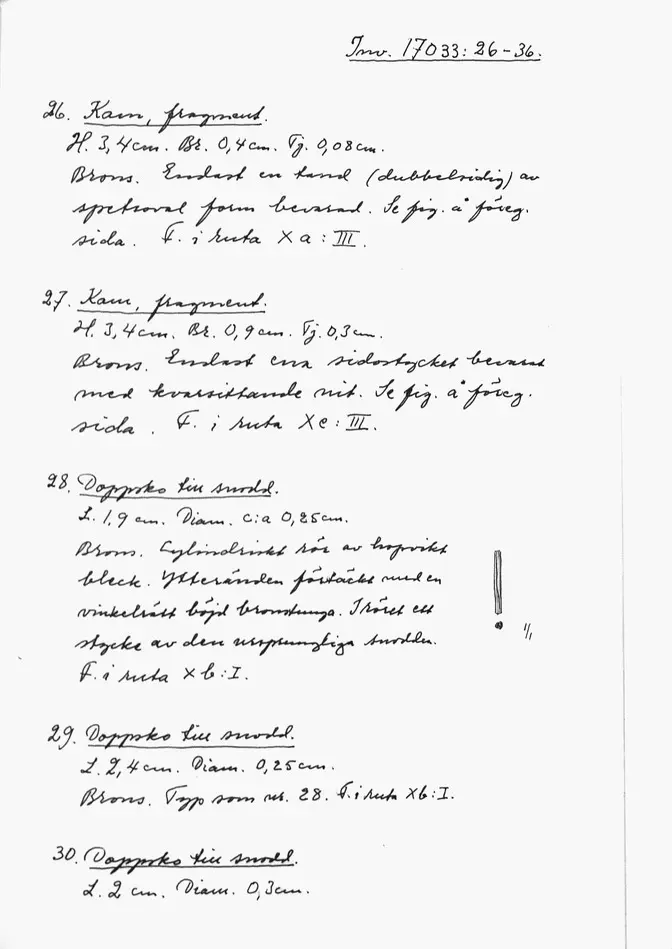 Inv. 17033:26-36.
26. Kam, fragment.
H. 3,4cm. Br. 0,4cm. Tj. 0,08cm.
Brons. Endast en tand (dubbelsidig) av
spetsoval form bevarad. Se fig. å föreg.
sida. F. i ruta Xa:III.
27. Kam, fragment.
H. 3,4cm. Br. 0,9cm. Tj. 0,3cm.
Brons. Endast ena sidostycket bevarat
med kvarsittande nit. Se fig. å föreg.
sida. F. i ruta Xc:III.
28. Doppsko till snodd.
L. 1,9 cm. Diam. c:a 0,25cm.
Brons. Cylindriskt rör av hopvikt
bleck. Ytteränden förtäckt med en
vinkelrätt böjd bronstunga. I röret ett
stycke av den ursprungliga snodden.
F. i ruta Xb:I.
1/1
29. Doppsko till snodd.
L. 2,4cm. Diam. 0,25cm.
Brons. Typ som nr. 28. F. i ruta Xb:I.
30. Doppsko till snodd.
L. 2 cm. Diam. 0,3cm.